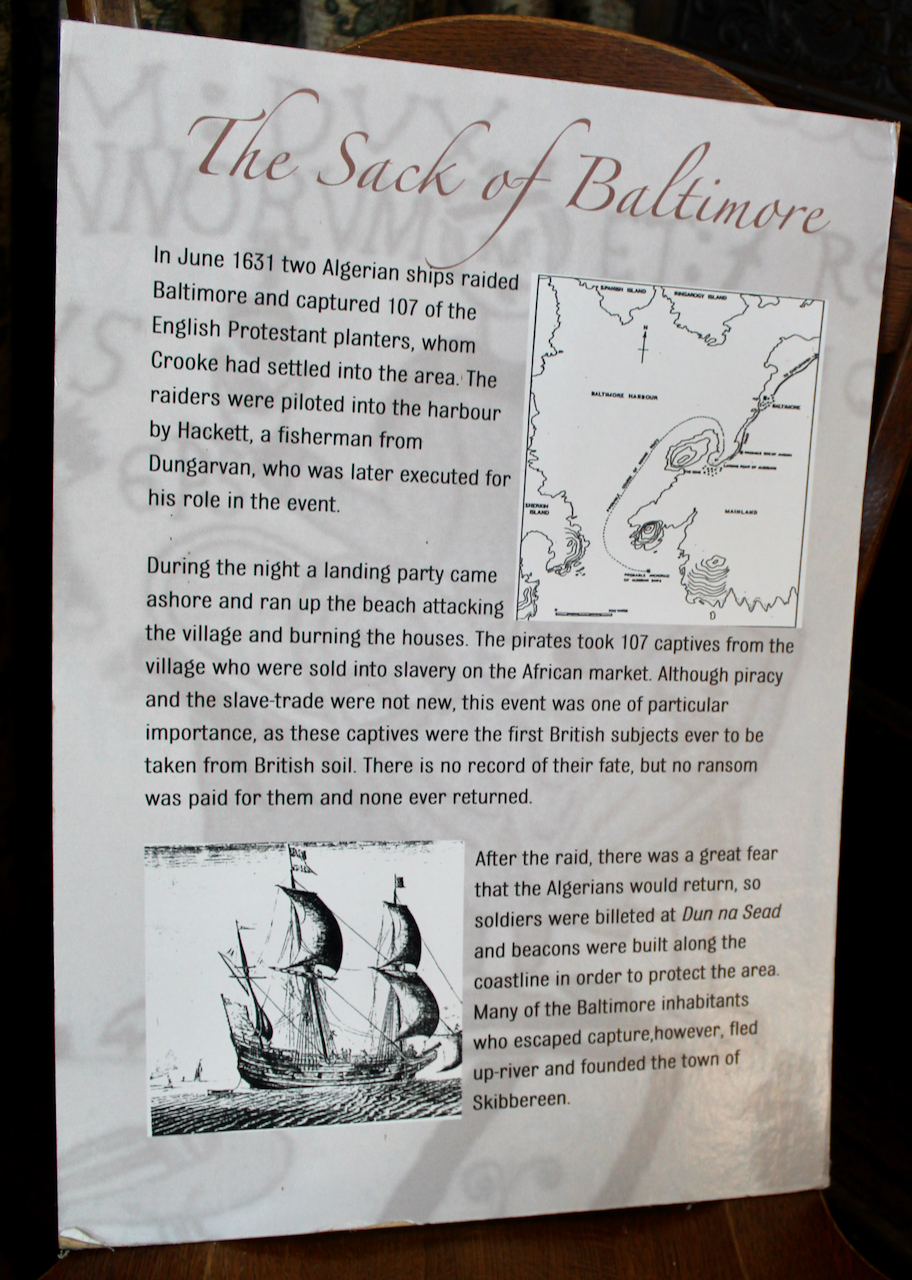 The Sack of Baltimore
In June 1631 two Algerian ships raided
Baltimore and captured 107 of the
English Protestant planters, whom
Crooke had settled into the area. The
raiders were piloted into the harbour
by Hackett, a fisherman from
Dungarvan, who was later executed for
his role in the event.
SPANISH ISLAND
RINGAROGY ISLAND
N
BALTIMORE HARBOUR
BALTIMORE
MAINLAND
SHERKIN
ISLAND
PROBABLE ANCHORAGE
OF ALGERIAN SHIPS
During the night a landing party came
ashore and ran up the beach attacking
the village and burning the houses. The pirates took 107 captives from the
village who were sold into slavery on the African market. Although piracy
and the slave-trade were not new, this event was one of particular
importance, as these captives were the first British subjects ever to be
taken from British soil. There is no record of their fate, but no ransom
was paid for them and none ever returned.
After the raid, there was a great fear
that the Algerians would return, so
soldiers were billeted at Dun na Sead
and beacons were built along the
coastline in order to protect the area.
Many of the Baltimore inhabitants
who escaped capture,however, fled
up-river and founded the town of
Skibbereen.